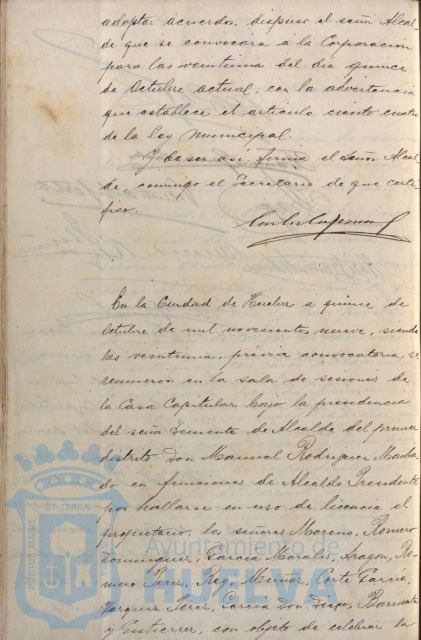 adoptar acuerdos, dispuso el señor Alcal-
de que se convocara a la Corporacion
para las veintiuna del dia quince
de Octubre actual, con la advertencia
que establece el articulo ciento cuatro
de la ley Municipal.
Y de ser asi, firma el señor Alcal-
de, conmigo el Secretario de que certi-
fico.
En la Ciudad de Huelva a quince de
Octubre de mil novecientos nueve, siendo
las veintiuna, prévia convocatoria, se
reunieron en la sala de sesiones de
la Casa Capitular bajo la presidencia
del señor Teniente de Alcalde del primer
distrito Don Manuel Rodriguez Macha-
do en funciones de Alcalde Presidente
por hallarse en uso de licencia el
propietario, los señores Moreno, Romero
Dominguez, Garcia Morales, Aragon, Ro-
mero Perez, Rey, Muñoz, Corte Garcia,
Vazquez Perez, Garcia Don Diego, Barrientos
y Gutierrez, con objeto de celebrar la
PORTUS MARIS ET TERRAE
Ayuntamiento de
HUELVA